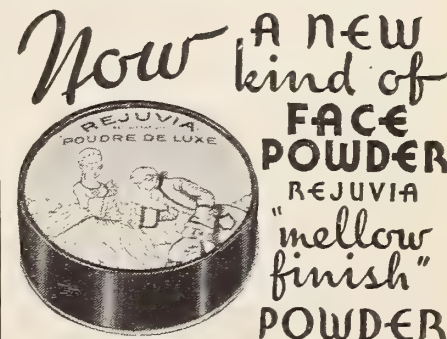 Now
A NEW
kind of
FACE
POWDER
REJUVIA
"mellow
finish"
POWDER
REJUVIA
POUDRE DE LUXE